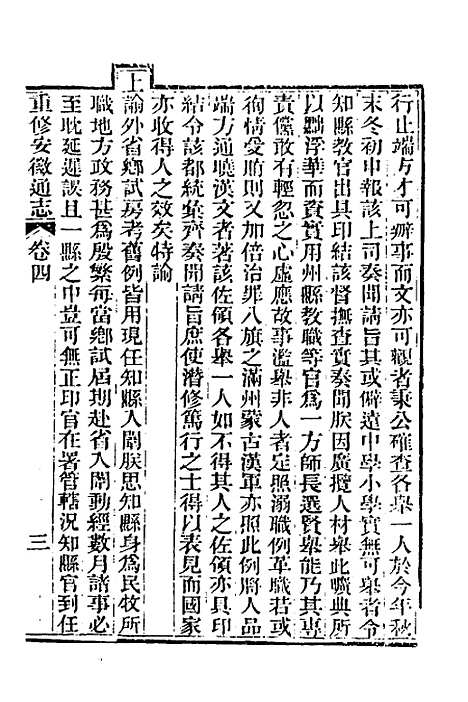 行止端方才可辦事而文亦可觀者秉公確查各舉一人於今年秋
末冬初申報該上司奏聞請旨其或僻遠中學小學實無可舉者令
知縣教官出具印結該督撫查實奏聞朕因廣攬人材舉此曠典所
以黜浮華而資實用州縣教職等官為一方師長選賢舉能乃其專
責儻敢有輕忽之心虛應故事濫舉非人者定照溺職例革職若或
徇情受賄則又加倍治罪八旗之滿州蒙古漢軍亦照此例將人品
端方通曉漢文者著該佐領各舉一人如不得其人之佐領亦具印
結令該都統彙齊奏聞請旨庶使潛修篤行之士得以表見而國家
亦收得人之效矣特諭
上諭外省鄉試房考舊例皆用現任知縣入闈朕思知縣身為民牧所
職地方政務甚為殷繁每當鄉試屆期赴省入闈動經數月諸事必
至耽延遲誤且一縣之中豈可無正印官在署管轄況知縣官到任
重修安徽通志 卷四 三